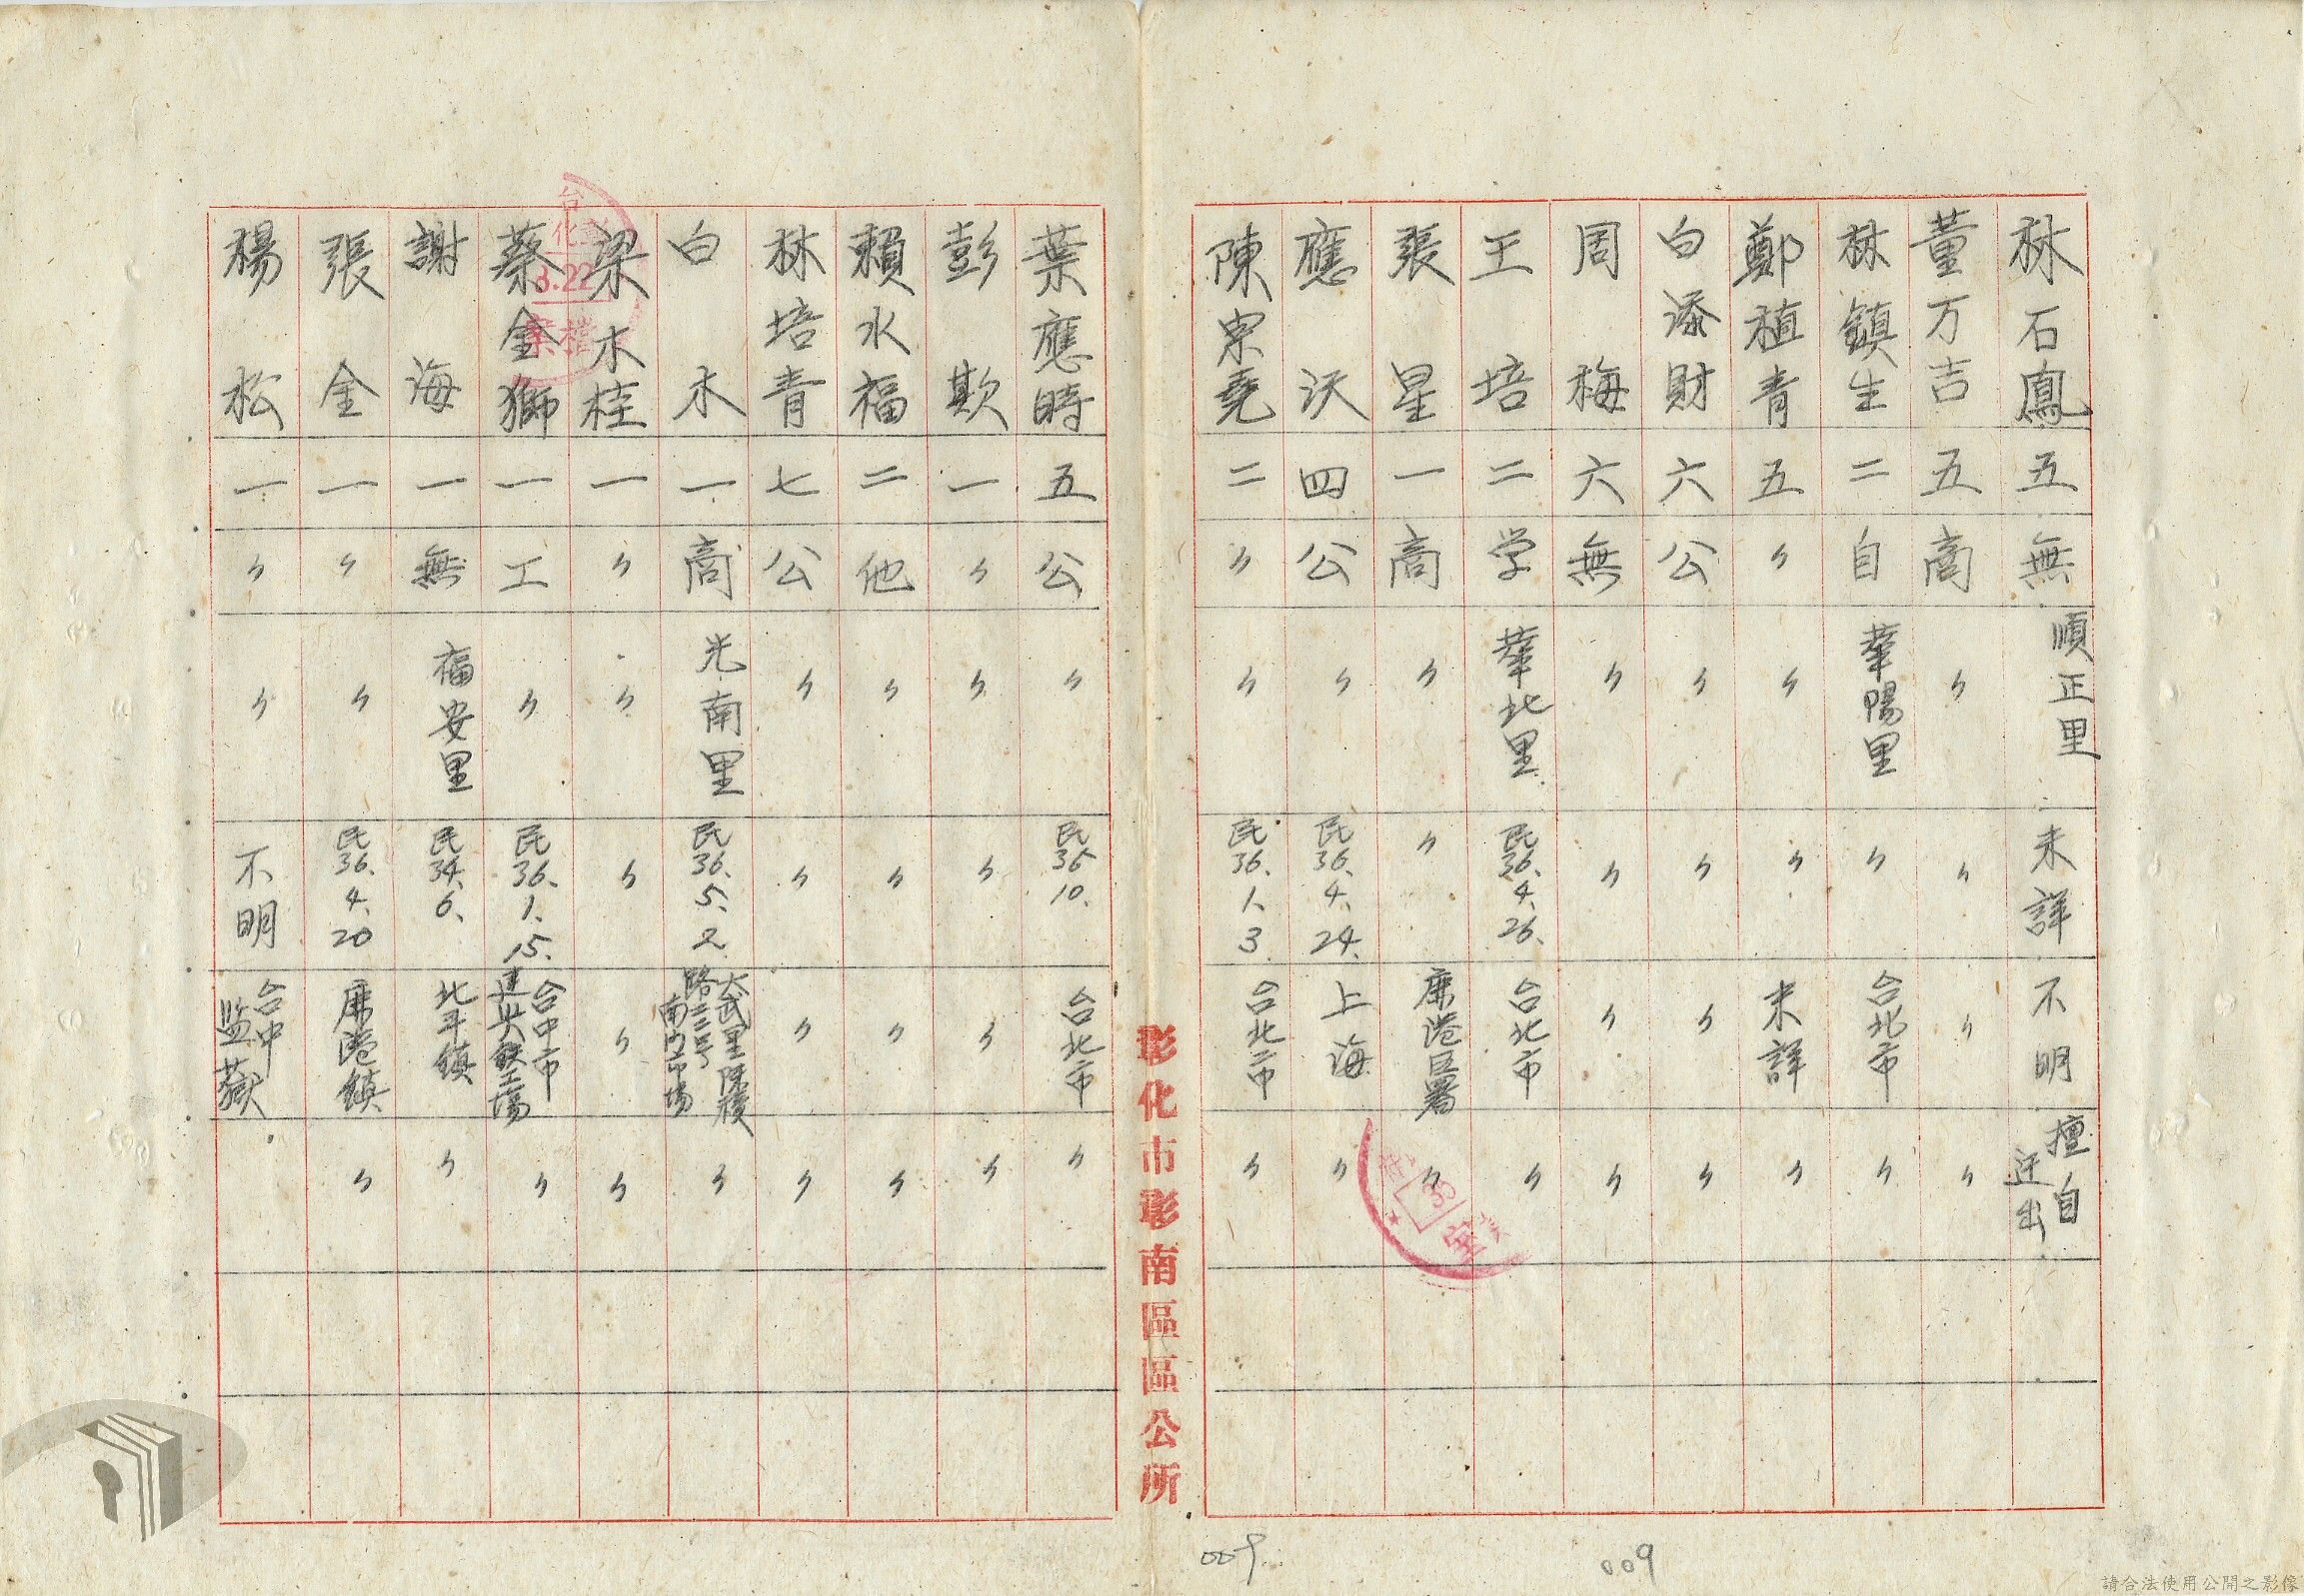 林石鳳 五 無 順正里 未詳 不明 擅自迁出
董万吉 五 商 〃 〃 〃 〃
林鎮生 二 自 華陽里 〃 台北市 〃
鄭植青 五 〃 〃 〃 未詳 〃
白添財 六 公 〃 〃 〃 〃
周梅 六 無 〃 〃 〃 〃
王培 二 学 華北里 民36.4.26. 台北市 〃
張星 一 商 〃 〃 鹿港区署 〃
應沃 四 公 〃 民36.4.24. 上海 〃
陳宗堯 二 〃 〃 民36.1.3 台北市 〃
彰化市彰南區區公所
葉應時 五 公 〃 民35 10. 台北市 〃
彭欺 一 〃 〃 〃 〃 〃
賴水福 二 他 〃 〃 〃 〃
林培青 七 公 〃 〃 〃 〃
白木 一 商 光南里 民36.5.2 大武里陳稜路三三号南门市場 〃
梁木桂 一 〃 〃 〃 〃 〃
蔡金獅 一 工 〃 民36.1.15. 台中市建兴鉄工場 〃
謝海 一 無 福安里 民34.6. 北斗鎮 〃
張金 一 〃 〃 民36.4.20 鹿港鎮 〃
楊松 一 〃 〃 不明 台中监獄
3.22
檔案
35
009
009
請合法使用公開之影像